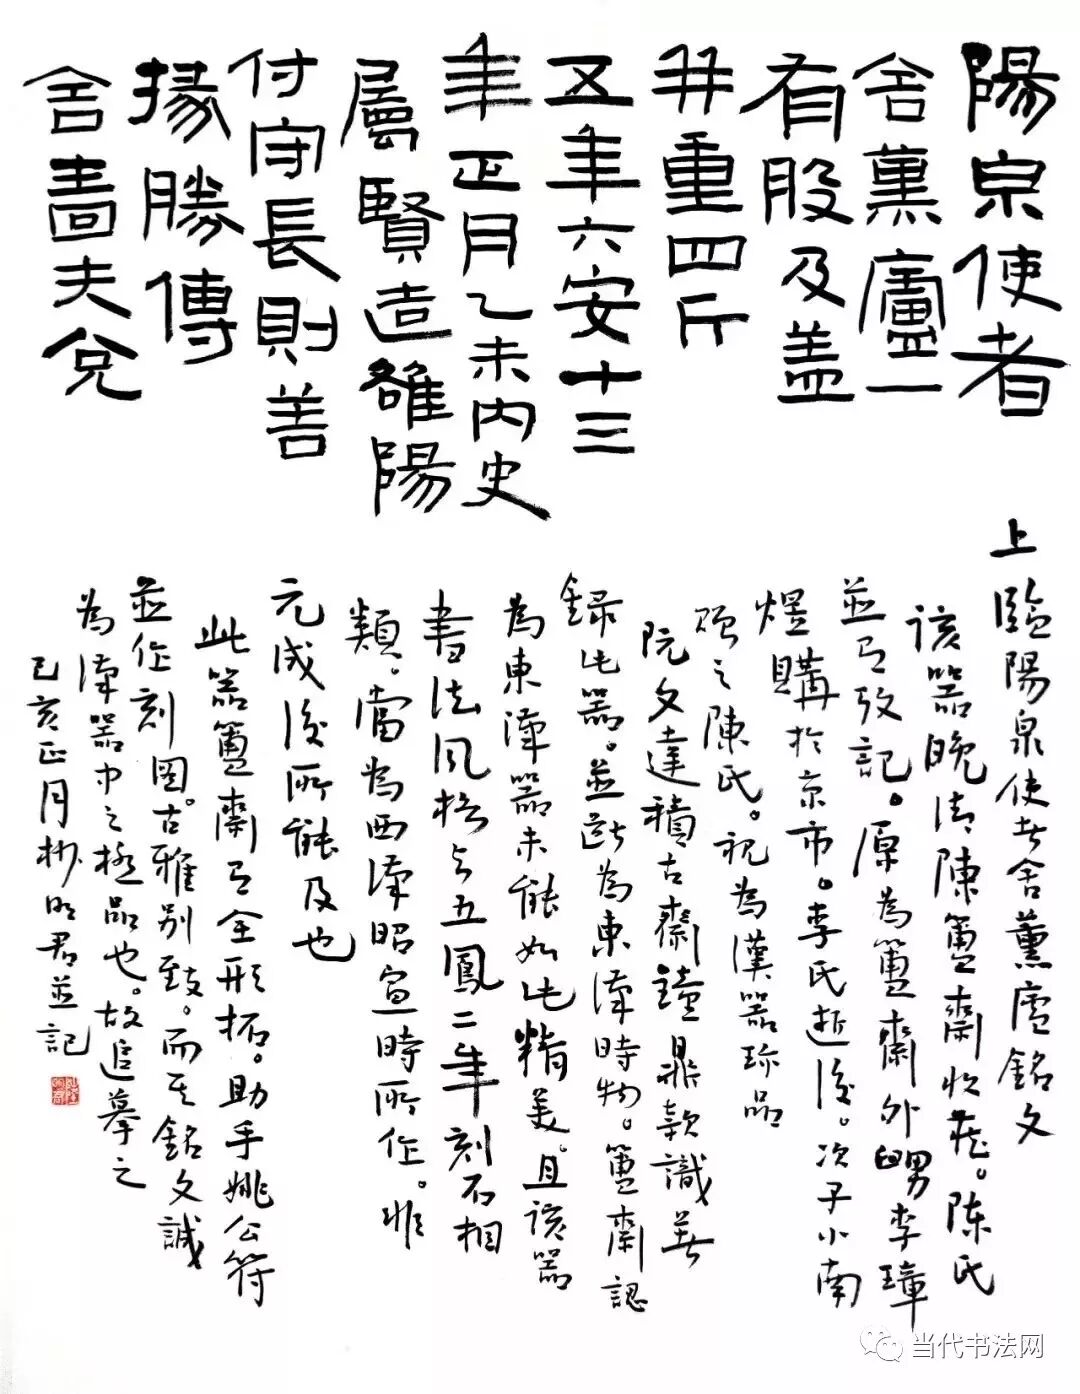 陽泉使者
舍薰廬一
有股及盖
并重四斤
五年六安十三
年正月乙未內史
屬賢造雒陽
付守長則善
掾勝傳
舍嗇夫兌
上臨陽泉使者舍薰廬銘文
該器晚清陳簠齋收藏。陈氏
並有攷記。原為簠齋外舅李璋
煜購於京市。李氏逝後。次子小南
之陳氏。視為漢器珍品
阮文達積古齋鐘鼎款識著
録此器。並断為東漢時物。簠齋認
為東漢器未能如此精美。且该器
書法风格与五鳳二年刻石相
類。當為西漢昭宣時所作。非
元成後所能及也
此器簠齋有全形拓。助手姚公符
並作刻图。古雅别致。而其銘文誠
為漢器中之極品也。故追摹之
己亥正月杪明君並記
当代书法网